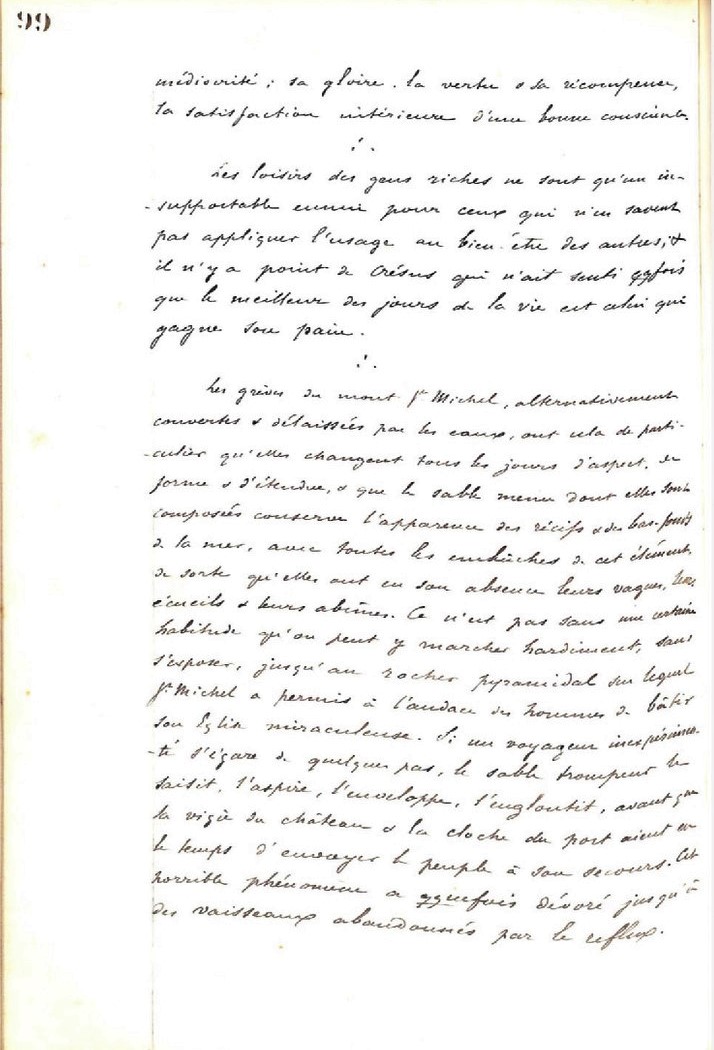 99
médiocrité ; sa gloire . la vertu & sa récompense,
la satisfaction intérieure d'une bonne conscience.
Les loisirs des gens riches ne sont qu'un in-
-supportable ennui pour ceux qui n'en savent
pas appliquer l'usage au bien-être des autres ; &
il n'y a point de Crésus qui n'ait senti qqfois
que le meilleur des jours de la vie est celui qui
gagne son pain.
Les grèves du mont St Michel, alternativement
couvertes & délaissées par les eaux, ont cela de parti-
-culier qu'elles changent tous les jours d'aspect, de
forme & d'étendue, & que le sable menu dont elles sont
composées conserve l'apparence des récifs & des bas-fonds
de la mer, avec toutes les embûches de cet élément,
de sorte qu'elles ont en son absence leurs vagues, leurs
écueils & leurs abîmes. Ce n'est pas sans une certaine
habitude qu'on peut y marcher hardiment, sans
s'exposer, jusqu'au rocher pyramidal sur lequel
St Michel a permis à l'audace des hommes de bâtir
son Eglise miraculeuse. Si un voyageur inexpérimen-
-té s'égare de quelques pas, le sable trompeur le
saisit, l'aspire, l'enveloppe, l'engloutit, avant que
la vigie du château & la cloche du port aient eu
le temps d'envoyer le peuple à son secours. Cet
horrible phénomène a qquefois dévoré jusqu'à
des vaisseaux abandonnés par le reflux.